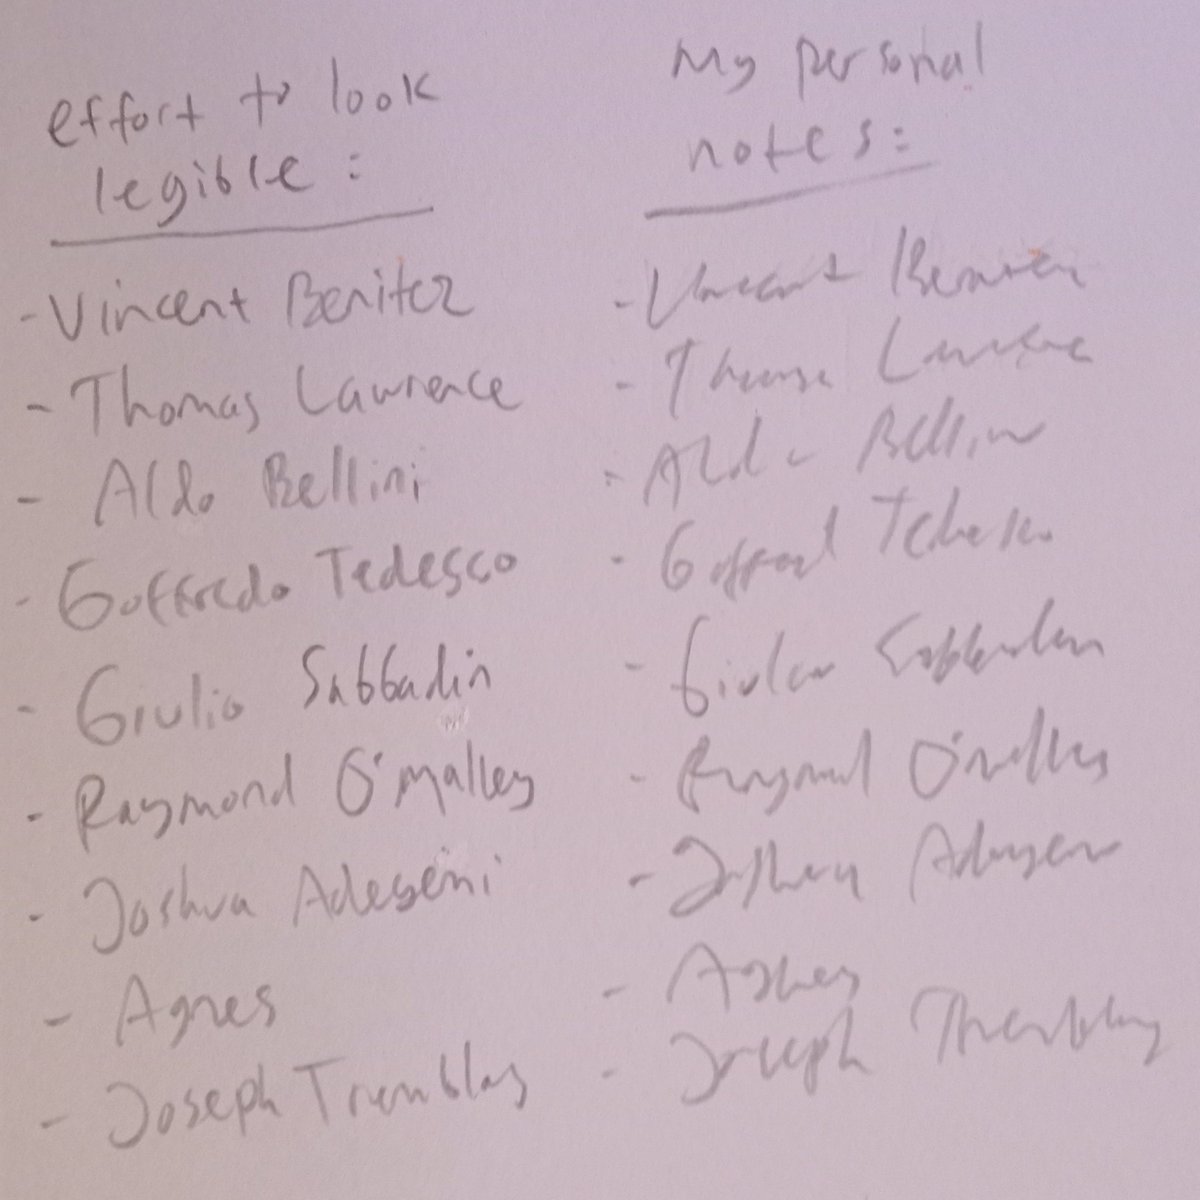 effort to look
legible:
- Vincent Benitez
- Thomas Lawrence
- Aldo Bellini
- Goffredo Tedesco
- Giulio Sabbadin
- Raymond O'Malley
- Joshua Adeyemi
- Agnes
- Joseph Tremblay
My personal
notes:
- Vincent Benitez
- Thomas Lawrence
- Aldo Bellini
- Goffredo Tedesco
- Giulio Sabbadin
- Raymond O'Malley
- Joshua Adeyemi
- Agnes
- Joseph Tremblay